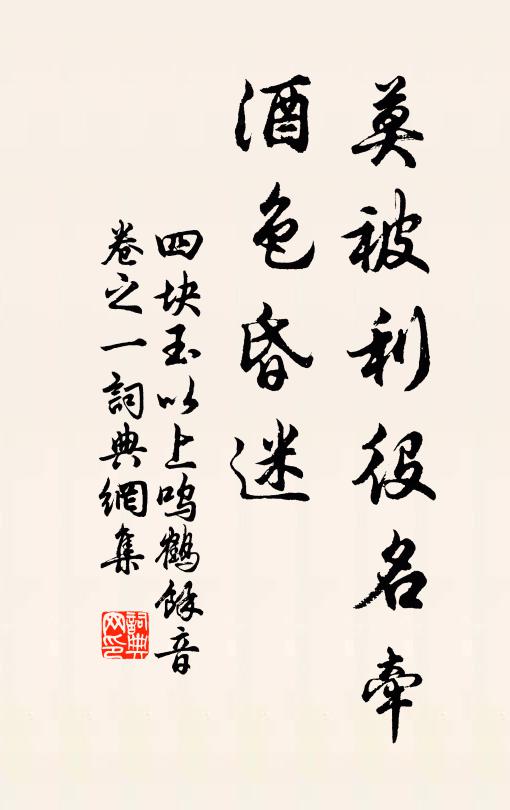 莫被利役名牽
酒色昏迷
四块玉以上鸣鶴餘音
卷之一詞典網集
詞典
网印